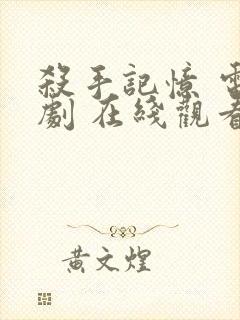 殺手記憶 電
劇 在綫觀看
黃文煌